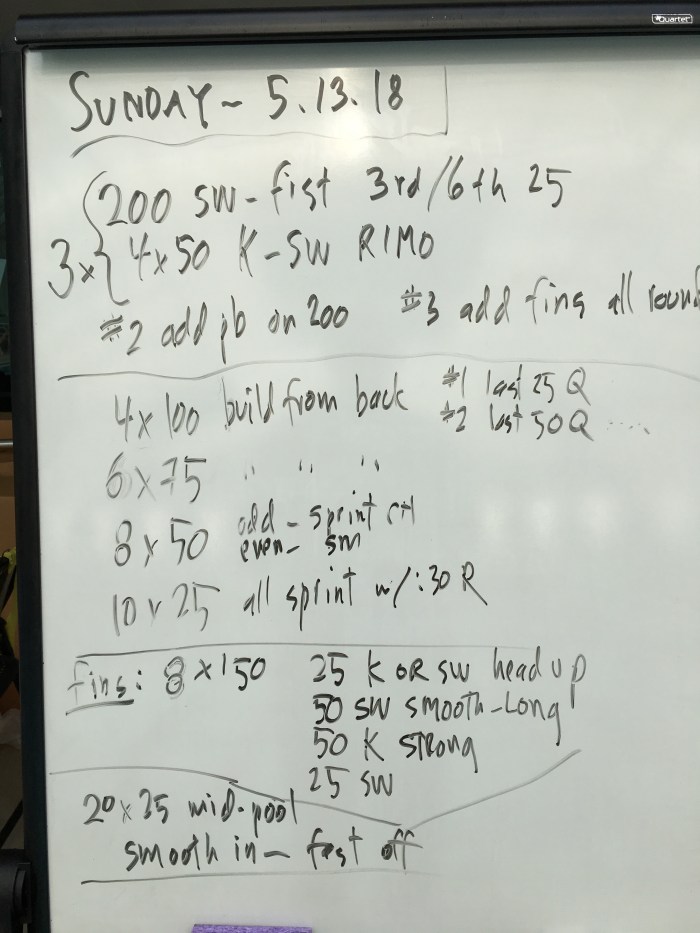 Quartet
SUNDAY - 5.13.18
200 SW - fist 3rd/6th 25
3x{ 4x50 K-SW RIMO
#2 add pb on 200 #3 add fins all round
4x100 build from back #1 last 25 Q
#2 last 50 Q ....
6x75 " " "
8x50 odd - sprint
even - sm
10x25 all sprint w/:30 R
fins: 8x150 25 K OR SW head up
50 SW smooth-Long
50 K STRONG
25 SW
20x25 mid-pool
smooth in - fast off